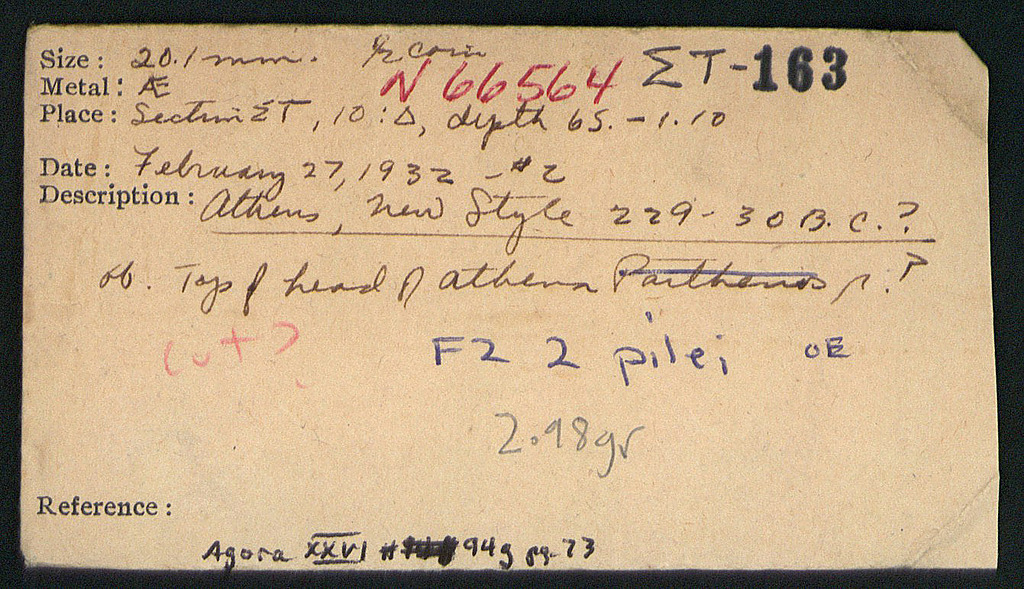 Size : 20.1 mm. ½ coin ΣΤ-163
Metal : Æ N 66564
Place : Section ΣΤ, 10 : Δ, depth 65. - 1.10
Date : February 27, 1932 - #2
Description : Athens, New Style 229-30 B.C.?
ob. Top of head of Athena Parthenos r. ?
cut? F2 2 pilei OE
2.98gr
Reference :
Agora XXVI # 94g pg. 73